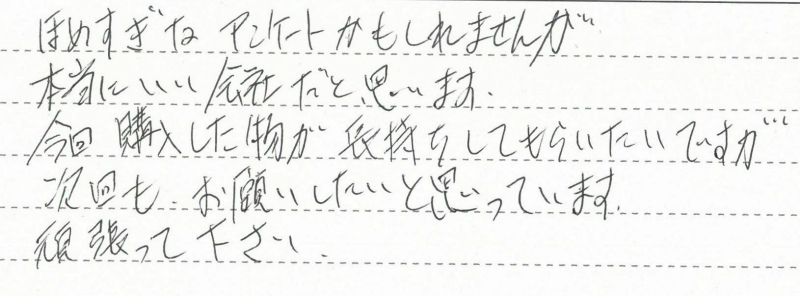 ほめすぎなアンケートかもしれませんが…
本当にいい会社だと思います。
今回購入した物が長持ちしてもらいたいですが…
次回も、お願いしたいと思っています。
頑張って下さい。